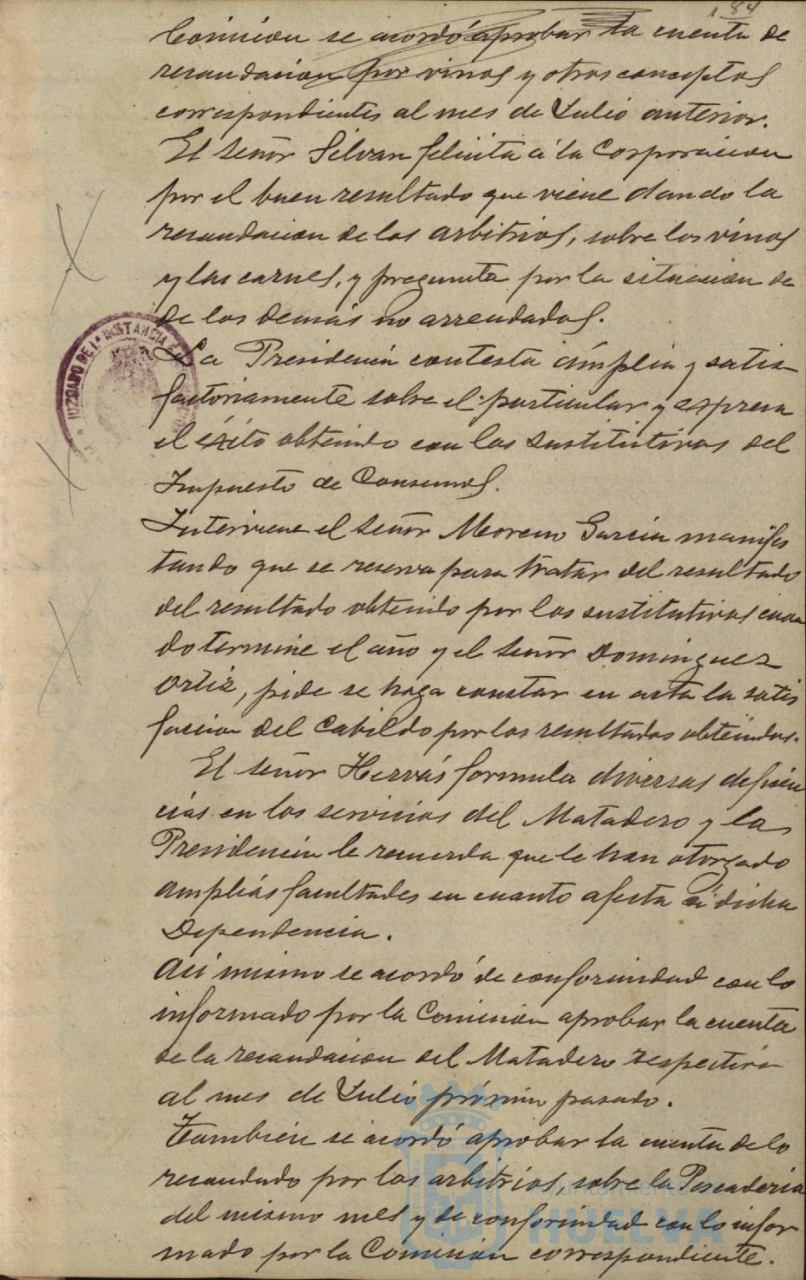 184
Comision se acordó aprobar la cuenta de
recaudacion por vinos y otros conceptos
correspondientes al mes de Julio anterior.
El señor Silvan felicita á la Corporacion
por el buen resultado que viene dando la
recaudacion de los arbitrios, sobre los vinos
y las carnes, y pregunta por la situacion de
de los demás no arrendados.
La Presidencia contesta ámplia y satis
factoriamente sobre el particular y expresa
el éxito obtenido con los sustitutivos del
Impuesto de Consumos.
Interviene el señor Moreno Garcia manifes
tando que se reserva para tratar del resultado
del resultado obtenido por los sustitutivos cuan
do termine el año y el señor Dominguez
Ortiz, pide se haga constar en acta la satis
faccion del Cabildo por los resultados obtenidos.
El señor Hervás formula diversas deficien
cias en los servicios del Matadero y la
Presidencia le recuerda que le han otorgado
amplias facultades en cuanto afecta á dicha
Dependencia.
Asi mismo se acordó de conformidad con lo
informado por la Comision aprobar la cuenta
de la recaudacion del Matadero respectiva
al mes de Julio próximo pasado.
Tambien se acordó aprobar la cuenta de lo
recaudado por los arbitrios, sobre la Pescaderia
del mismo mes y de conformidad con lo infor
mado por la Comision correspondiente.
JUZGADO DE 1ª INSTANCIA
HUELVA